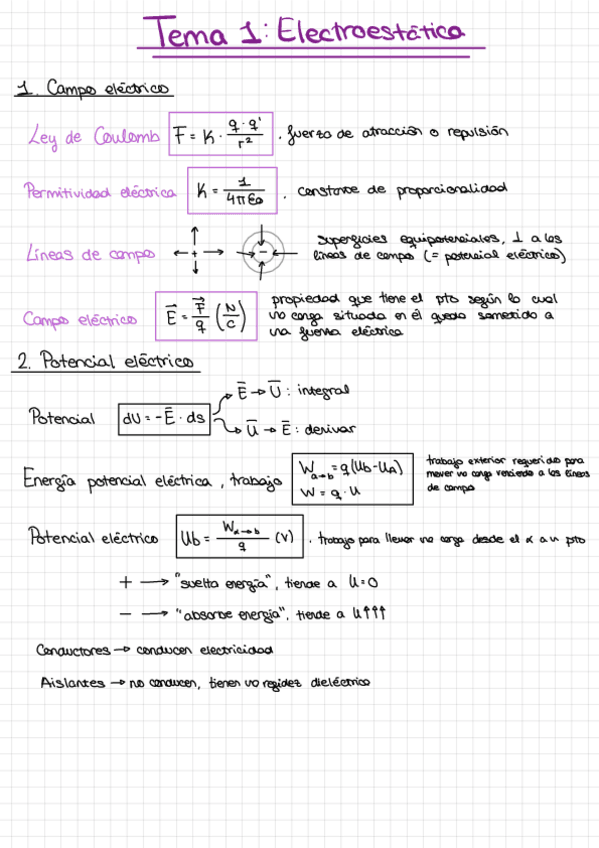 Tema 1: Electroestática
1. Campo eléctrico
Ley de Coulomb F = K · q · q' / r² . fuerza de atracción o repulsión
Permitividad eléctrica K = 1 / 4πε₀ . constante de proporcionalidad
Líneas de campo + − superficies equipotenciales, ⊥ a las
líneas de campo (= potencial eléctrico)
Campo eléctrico E⃗ = F⃗ / q (N/C) propiedad que tiene el pto según lo cual
una carga situada en él queda sometida a
una fuerza eléctrica
2. Potencial eléctrico
E̅ → U̅ : integral
Potencial dU = -E̅ · ds
U̅ → E̅ : derivar
Energía potencial eléctrica, trabajo W a→b = q(Ub - UA)
W = q · U
trabajo exterior requerido para
mover una carga venciendo a las líneas
de campo
Potencial eléctrico Ub = W∝→b / q (V) . trabajo para llevar una carga desde el ∝ a un pto
+ → "suelta energía", tiende a U=0
− → "absorbe energía", tiende a U↑↑↑
Conductores → conducen electricidad
Aislantes → no conducen, tienen una rigidez dieléctrica